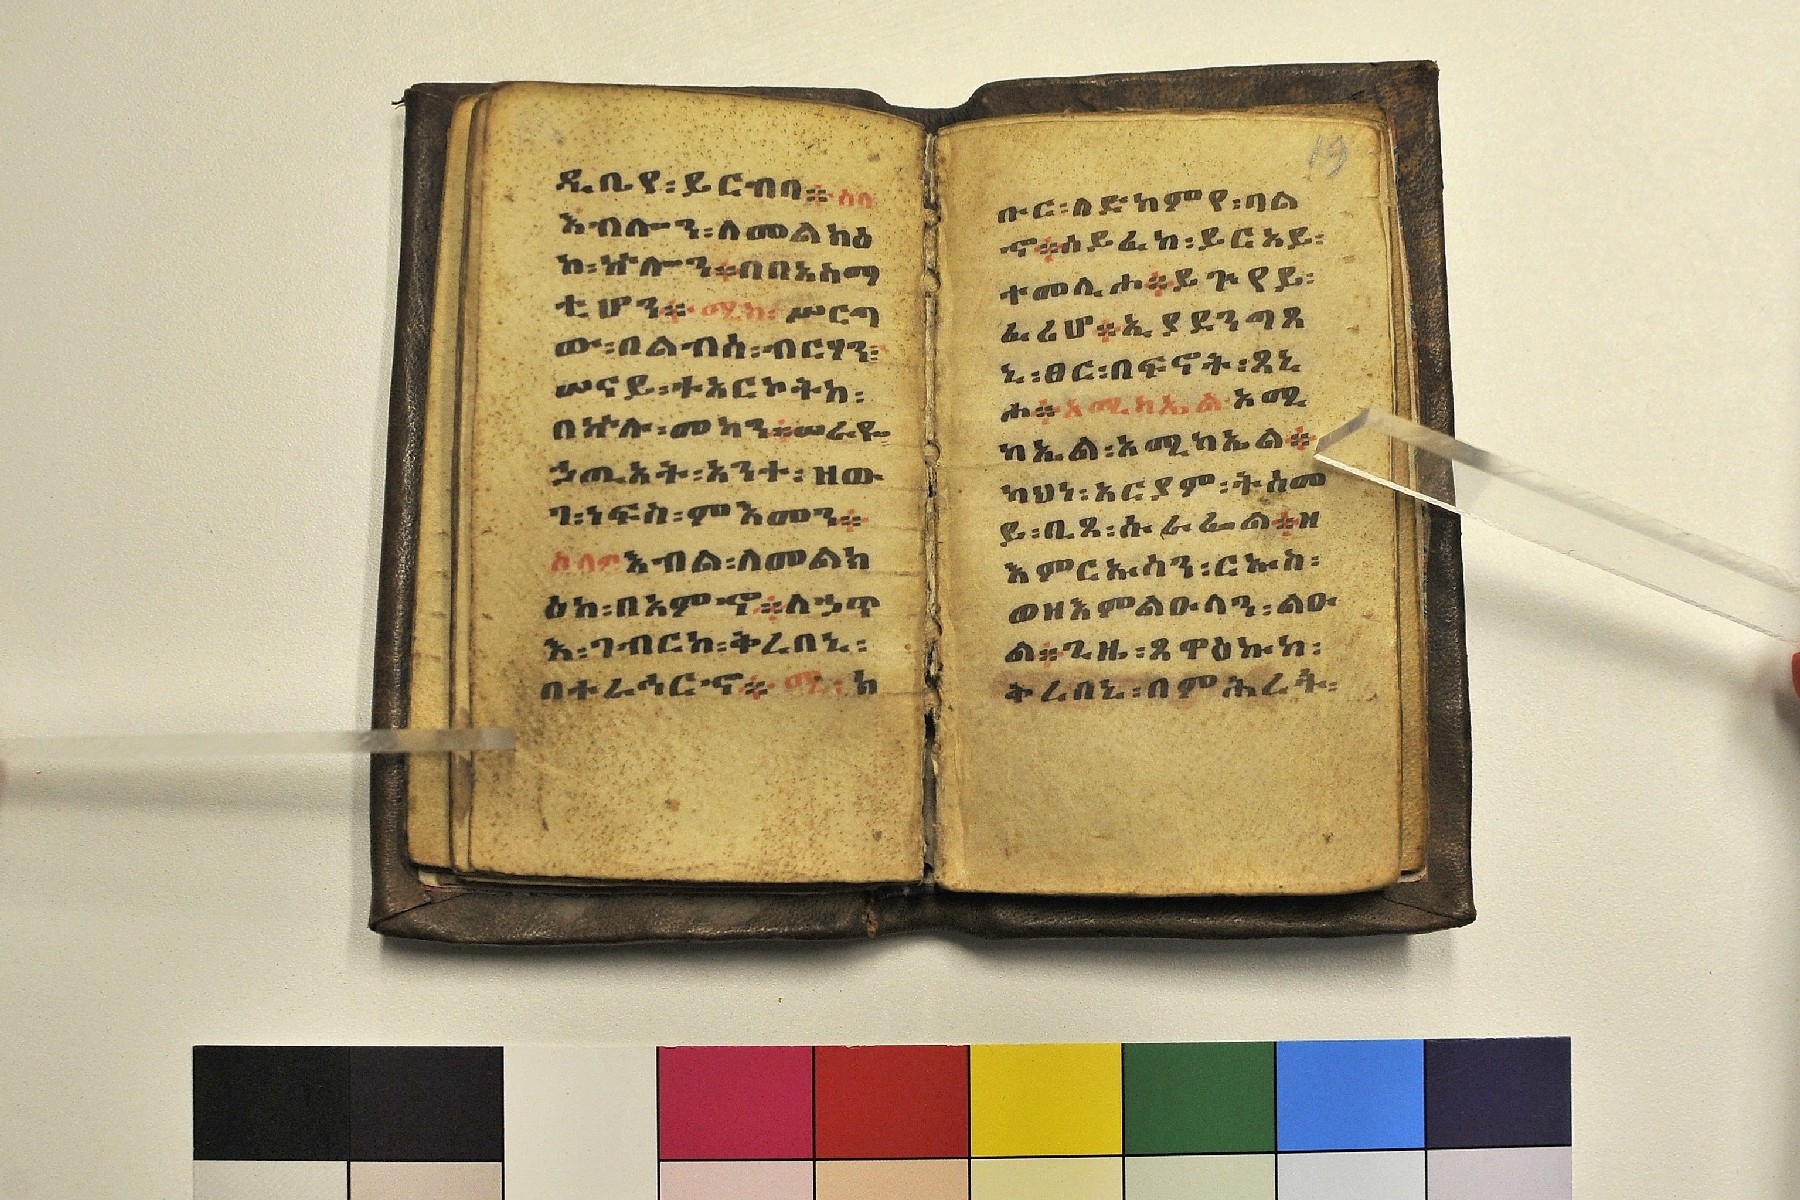 ዲቤየ፡ይርብብ። ሰላ
እብሎን፡ለመልክዕ
ከ፡ኵሎን።በበአስማ
ቲሆን። ሚካ፡ ሥርግ
ው፡በልብሰ፡ብርሃን፡
ሠናይ፡ተአርኮትከ፡
በኵሉ፡መካን።ሠራዬ
ኃጢአት፡አንተ፡ዘው
ገ፡ነፍስ፡ምእመን።
ሰላምእብል፡ለመልክ
ዕከ፡በአምኖ።ለኃጥ
እ፡ገብርከ፡ቅረበኒ፡
በተራኅርኆ። ሚ፡ ከ
19
ቡር፡ለድከምየ፡ባል
ኆ።ሰይፈከ፡ይርአይ፡
ተመሊሖ።ይጕየይ፡
ፈሪሆ።ኢያደንግጸ
ኒ፡ፀር፡በፍኖት፡ጸኒ
ሖ።አሚካኤል አሚ
ካኤል፡አሚካኤል።
ካህነ፡አርያም፡ትሰመ
ይ፡ቢጸ፡ሱራፌል።ዘ
እምርኡስን፡ርኡስ፡
ወዘእምልዑላን፡ልዑ
ል።ጊዜ፡ጸዋዕኩከ፡
ቅረበኒ፡በምሕረት፡